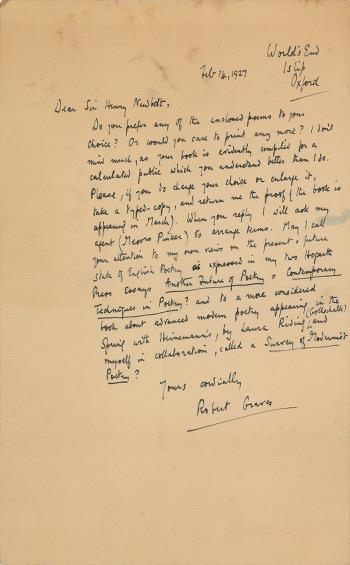 World's End
Islip
Oxford
Feb 14, 1927
Dear Sir Henry Newbolt,
Do you prefer any of the enclosed poems to your
choice? Or would you care to print any more? I don't
mind much, as your book is evidently compiled for a
calculated public which you understand better than I do.
Please, if you do change your choice or enlarge it,
take a typed-copy, and return me the proof (the book is
appearing in March). When you reply I will ask my
agent (Messrs Pinker) to arrange terms. May I call
your attention to my own views on the present & future
state of English Poetry as expressed in my two Hogarth
Press essays Another Future of Poetry & Contemporary
Techniques in Poetry? and to a more considered
book about advanced modern poetry appearing in the
Spring with Heinemann's, by Laura Riding (Gottschalk) and
myself in collaboration, called a Survey of Modernist
Poetry?
Yours cordially
Robert Graves